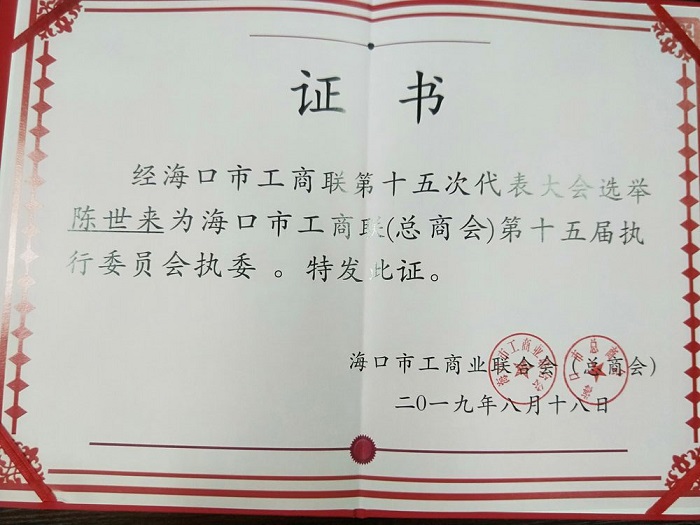 证 书
经海口市工商联第十五次代表大会选举
陈世来为海口市工商联(总商会)第十五届执
行委员会执委 。特发此证。
海口市工商业联合会（总商会）
二0一九年八月十八日